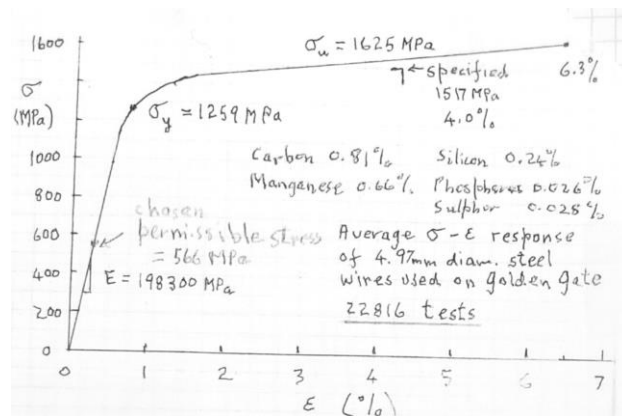 1600
σu = 1625 MPa
σ
(MPa)
specified
1517 MPa
4.0%
6.3%
σy = 1259 MPa
1000
800
600
400
200
0
Carbon 0.81%
Silicon 0.24%
Manganese 0.66%
Phosphorus 0.026%
Sulphur 0.028%
chosen
permissible stress
= 566 MPa
E = 198300 MPa
Average σ-ε response
of 4.97mm diam. steel
wires used on Golden Gate
22816 tests
0 1 2 3 4 5 6 7
ε (%)